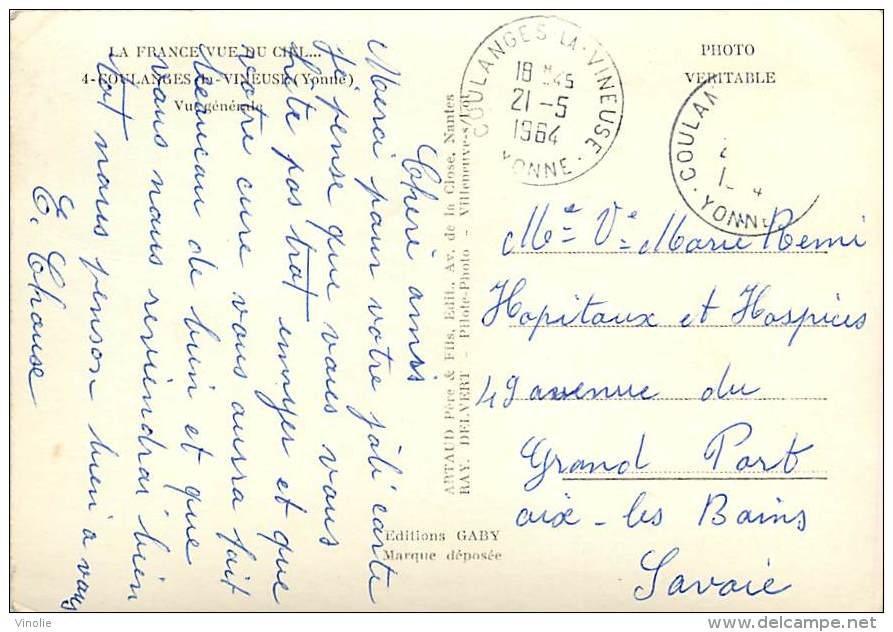 LA FRANCE VUE DU CIEL...
4-COULANGES-la-VINEUSE (Yonne)
Vue générale
PHOTO
VERITABLE
COULANGES-LA-VINEUSE
18 H45
21-5
1964
YONNE
COULAN
YONNE
Cheré amis
Merci pour votre joli carte
Je pense que vous vous
hate pas trot ennyer et que
votre cure vous aura fait
beaucau de bien et que
vous nous reviendrai bien
tot nous penson bien a vous
E. Chouse
ARTAUD Père & Fils, Edit., Av. de la Close, Nantes
RAY. DELVERT - Pilote-Photo - Villeneuve-s/Lot
Editions GABY
Marque déposée
Me Ve Marie Remi
Hopitaux et Hospices
49 avenue du
Grand Port
aix-les Bains
Savoie
Vinolie
www.delcampe.net